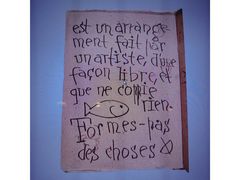 est un arrange
ment, fait par
un artiste, d'une
façon libre, et
que ne copie
rien.
Formes-pas
des choses